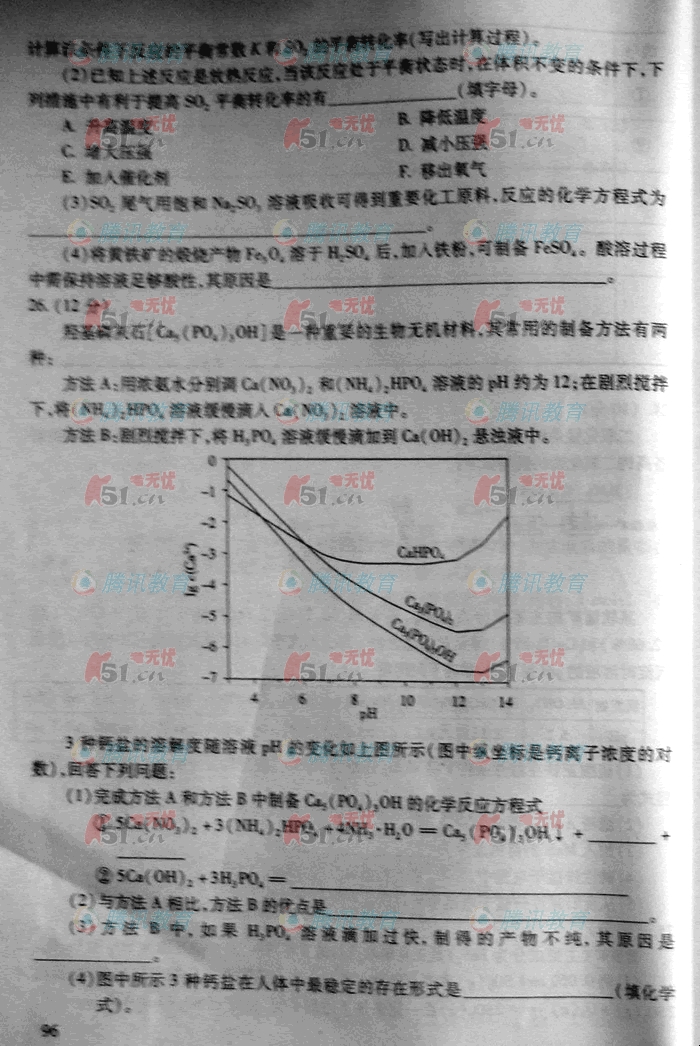 计算该条件下反应的平衡常数K和SO₂的平衡转化率(写出计算过程)。
(2)已知上述反应是放热反应,当该反应处于平衡状态时,在体积不变的条件下,下
列措施中有利于提高SO₂平衡转化率的有____________(填字母)。
A. 升高温度 B. 降低温度
C. 增大压强 D. 减小压强
E. 加入催化剂 F. 移出氧气
(3)SO₂尾气用饱和Na₂SO₃溶液吸收可得到重要化工原料,反应的化学方程式为
____________。
(4)将黄铁矿的煅烧产物Fe₃O₄溶于H₂SO₄后,加入铁粉,可制备FeSO₄。酸溶过程
中需保持溶液足够酸性,其原因是____________。
26.(12分)
羟基磷灰石[Ca₅(PO₄)₃OH]是一种重要的生物无机材料,其常用的制备方法有两
种:
方法A:用浓氨水分别调Ca(NO₃)₂和(NH₄)₂HPO₄溶液的pH约为12;在剧烈搅拌
下,将(NH₄)₂HPO₄溶液缓慢滴入Ca(NO₃)₂溶液中。
方法B:剧烈搅拌下,将H₃PO₄溶液缓慢滴加到Ca(OH)₂悬浊液中。
0
-1
-2
-3
-4
-5
-6
-7
lg c(Ca²⁺)
CaHPO₄
Ca₃(PO₄)₂
Ca₅(PO₄)₃OH
4 6 8 10 12 14
pH
3种钙盐的溶解度随溶液pH的变化如上图所示(图中纵坐标是钙离子浓度的对
数),回答下列问题:
(1)完成方法A和方法B中制备Ca₅(PO₄)₃OH的化学反应方程式
①5Ca(NO₃)₂+3(NH₄)₂HPO₄+4NH₃·H₂O=Ca₅(PO₄)₃OH↓+______+
______
②5Ca(OH)₂+3H₃PO₄=____________
(2)与方法A相比,方法B的优点是____________。
(3)方法B中,如果H₃PO₄溶液滴加过快,制得的产物不纯,其原因是
____________。
(4)图中所示3种钙盐在人体中最稳定的存在形式是____________(填化学
式)。
96
腾讯教育
K51.cn无忧